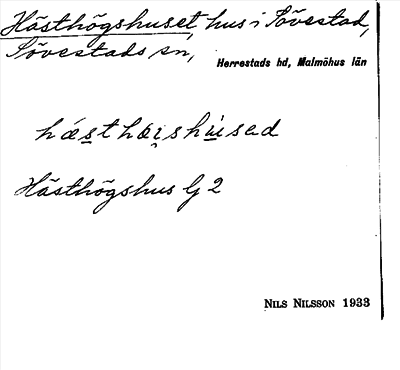 Hästhögshuset, hus i Sövestad,
Sövestads sn,
Herrestads hd, Malmöhus län
Hästhögshus Gj 2
NILS NILSSON 1933